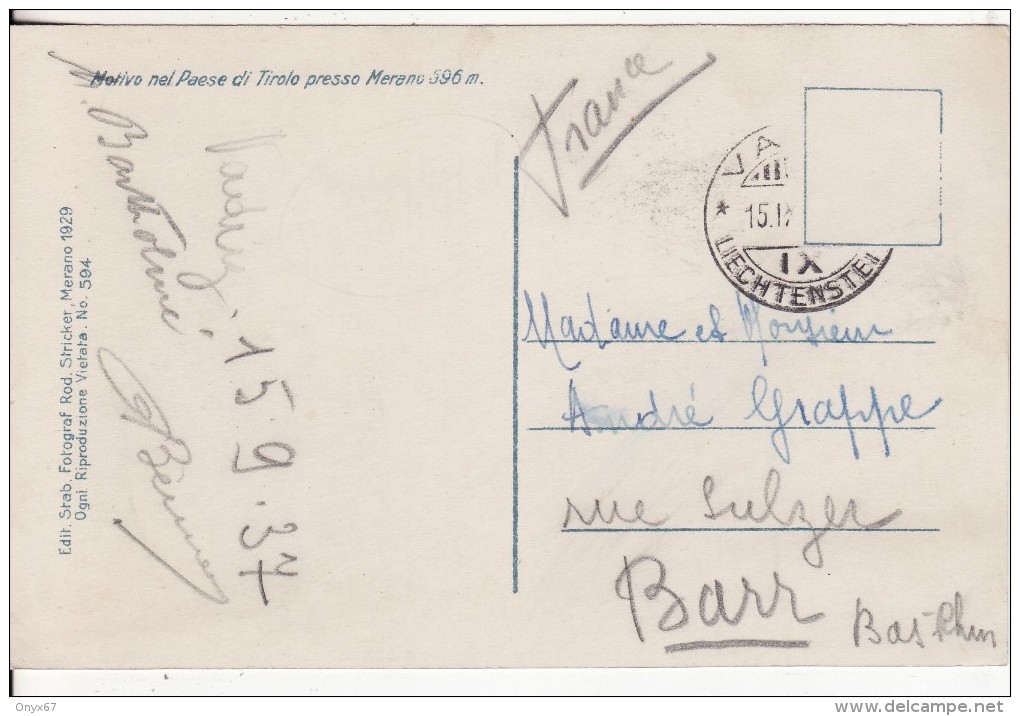 Motivo nel Paese di Tirolo presso Merano 596 m.
France
VA
* 15.IX
IX
LIECHTENSTEI
Madame et Monsieur
André Grappe
rue Sulzer
Barr
Bas-Rhin
Vaduz, 15.9.37
M. Bartholmé
Edit. Stab. Fotograf Rod. Stricker, Merano 1929
Ogni Riproduzione Vietata. No. 594
Onyx67
delcampe.net